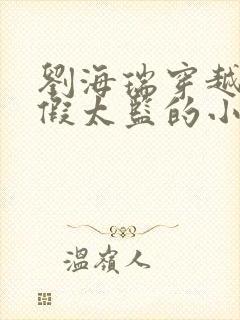 劉海瑞穿越
假太監的小
溫嶺人